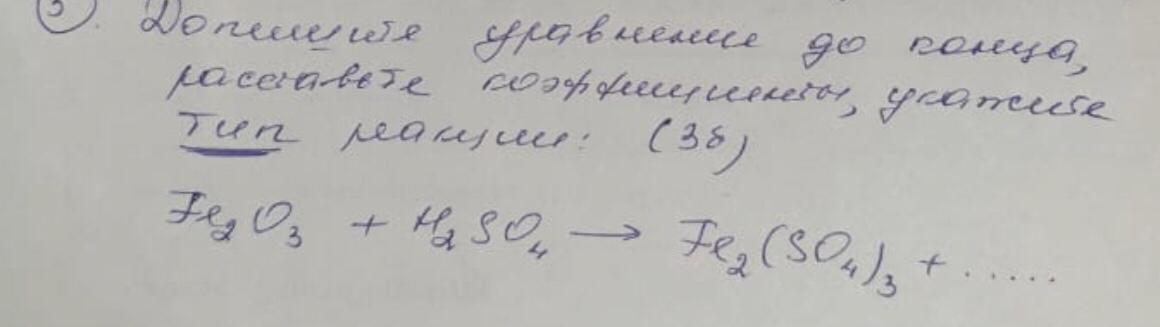 3). Допишите уравнение до конца,
расставьте коэффициенты, укажите
тип реакции: (3б)
Fe₂O₃ + H₂SO₄ → Fe₂(SO₄)₃ + .....